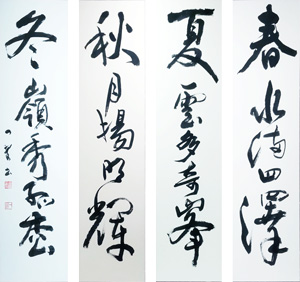 春水滿四澤
夏雲多奇峯
秋月揚明輝
冬嶺秀孤松